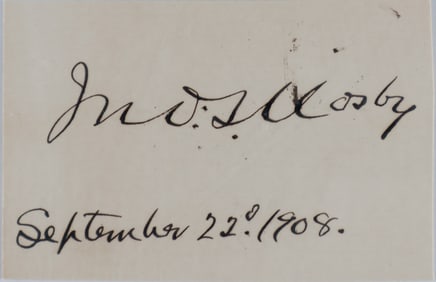 Jno. S. Mosby
September 22d. 1908.